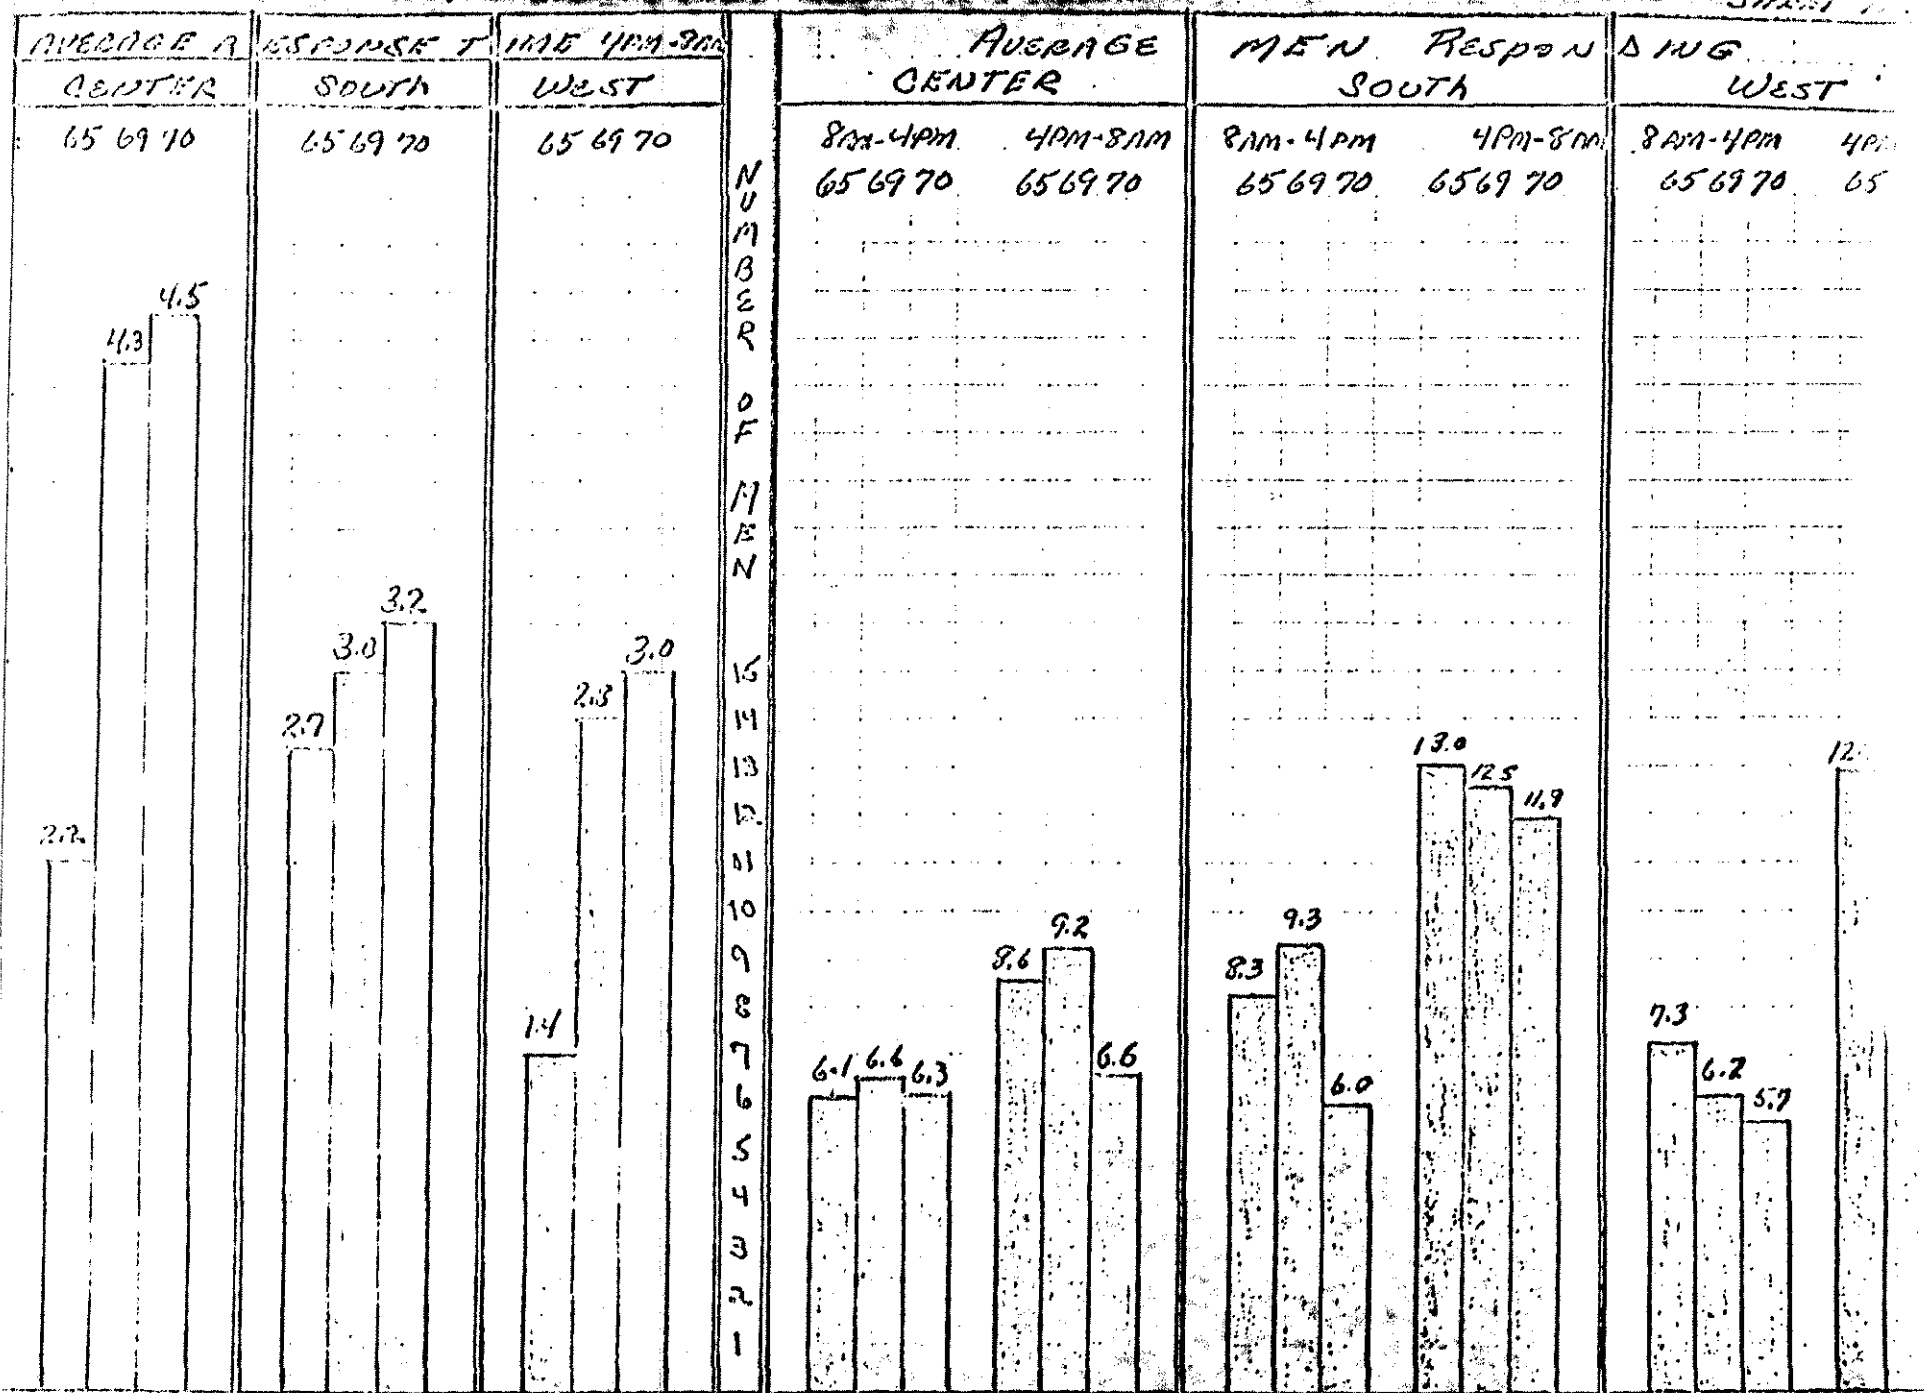 AVERAGE RESPONSE TIME 4PM-8AM
CENTER SOUTH WEST
65 69 70 65 69 70 65 69 70
4.5
4.3
3.2
3.0 3.0
2.8
2.7
2.2
1.4
NUMBER OF MEN
15
14
13
12
11
10
9
8
7
6
5
4
3
2
1
AVERAGE MEN RESPONDING
CENTER SOUTH WEST
8AM-4PM 4PM-8AM 8AM-4PM 4PM-8AM 8AM-4PM 4PM
65 69 70 65 69 70 65 69 70 65 69 70 65 69 70 65
13.0 12.5 11.9
9.2 9.3
8.6 8.3
7.3
6.1 6.6 6.3 6.6 6.0 6.2